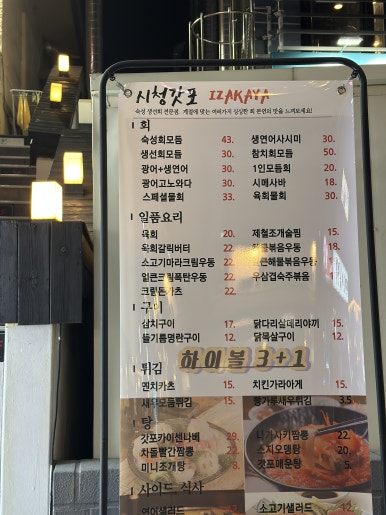 시청갓포 IZAKAYA
숙성 생선회 전문점. 계절에 맞는 여러가지 싱싱한 회 본연의 맛을 느껴보세요!
회
숙성회모듬 43. 생연어사시미 30.
생선회모듬 30. 참치회모듬 50.
광어+생연어 30. 1인모듬회 20.
광어고노와다 30. 시메사바 18.
스페셜물회 33. 육회물회 30.
일품요리
육회 20. 제철조개술찜 15.
쭉회갈릭버터 22. 볶음우동 18.
소고기마라크림우동 22. 해물볶음우동
얼큰크림폭탄우동 22. 우삼겹숙주볶음
크림돈카츠 22.
구이
삼치구이 17. 닭다리살데리야끼 15.
들기름명란구이 12. 닭목살구이 12.
하이볼 3+1
튀김
멘치카츠 15. 치킨가라아게 15.
새우모듬튀김 15. 왕가루새우튀김 3.5
탕
갓포카이센나베 29. 나가사키짬뽕 22.
차돌빨간짬뽕 22. 스지오뎅탕 20.
미니조개탕 8. 갓포매운탕 5.
사이드·식사
연어샐러드 소고기샐러드